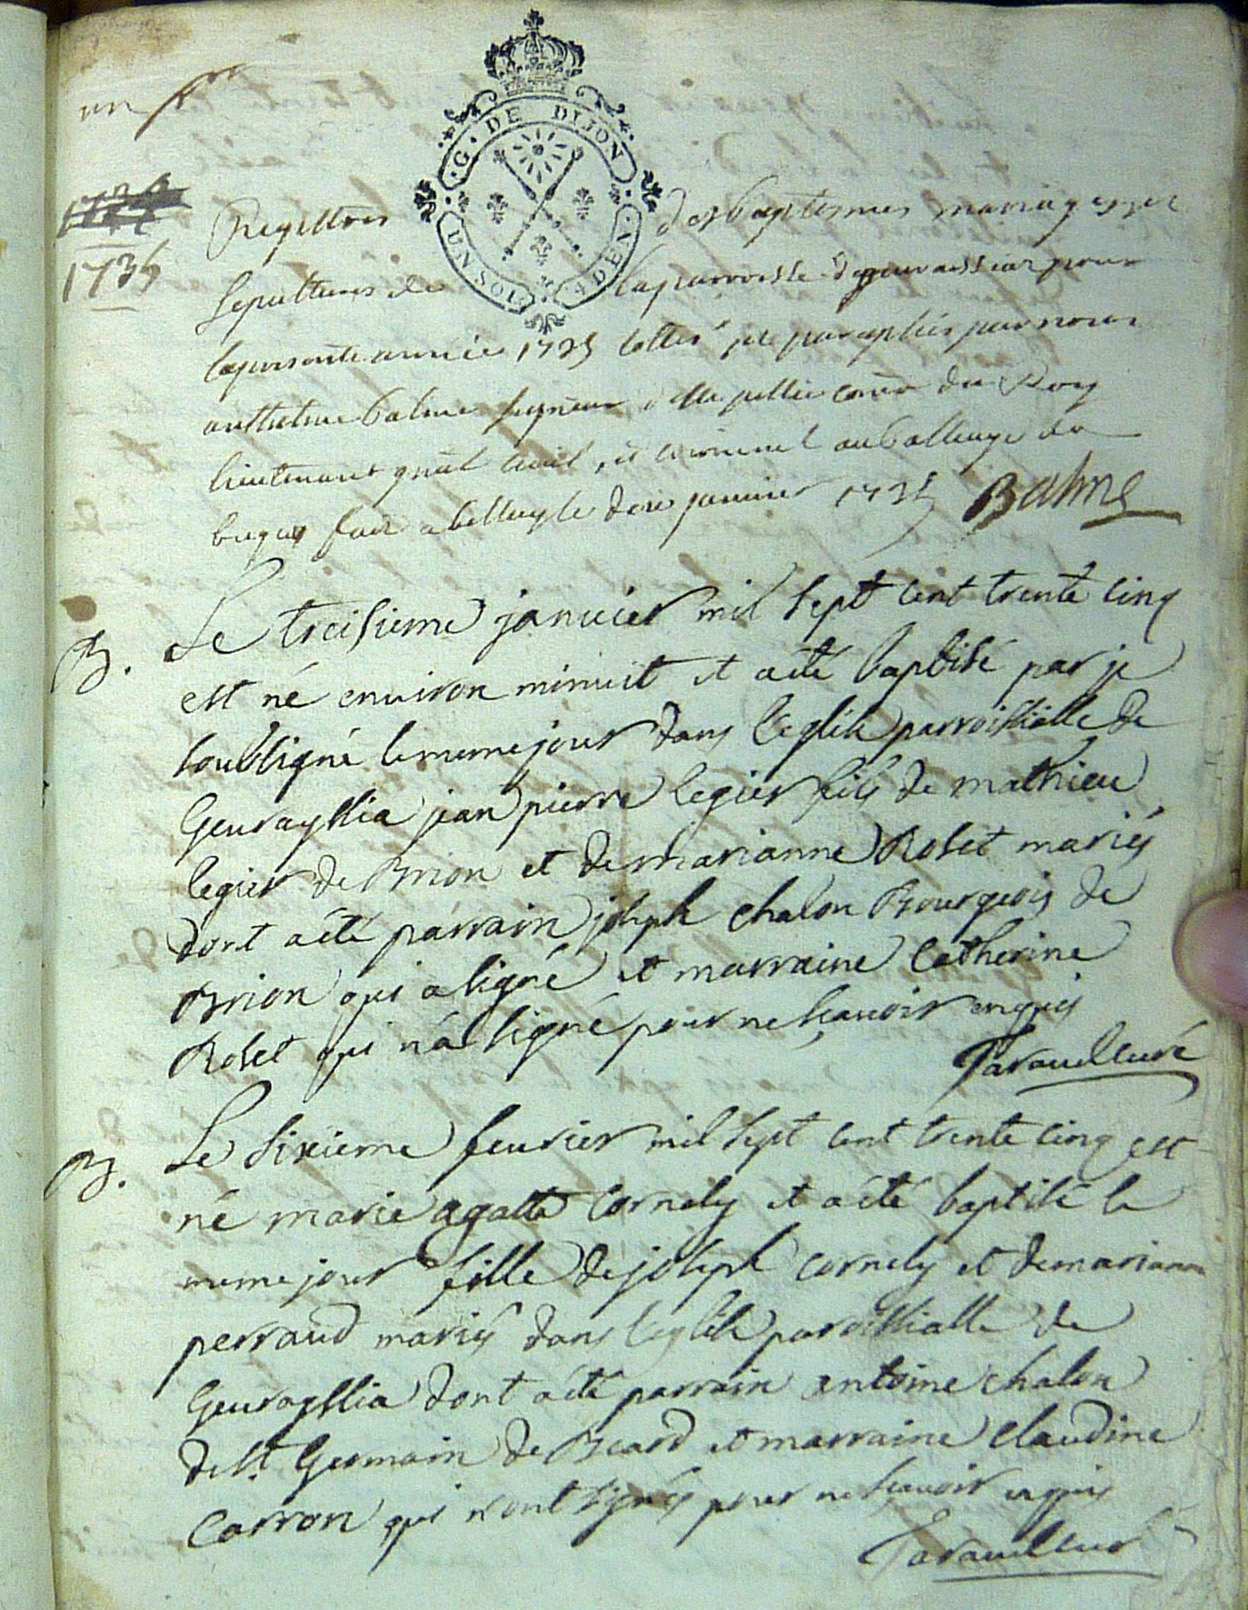 un
G. DE DIJON
UN SOL 4 DEN.
1735
Registres des baptesmes mariages et
sepultures de la parroisse de geuraissiaz pour
la presente année 1735 cottés et paraphés par nous
anthelme balme seigneur conër du Roy
lieutenant gnãl civil et criminel au balliage de
bugey fait a belley le janvier 1735 Balme
B. Le treisieme janvier mil sept cent trente cinq
est né environ minuit et a eté baptisé par je
soubsigné le meme jour dans l'eglise parroissialle de
Geurayssia jean pierre legier fils de mathieu
legier de Brion et de marianne Roset mariés
dont a été parrain joseph chalon Bourgeois de
Brion qui a signé et marraine Catherine
Roset qui n'a signé pour ne sçavoir enquis
Favauel curé
B. Le sixieme feurier mil sept cent trente cinq est
né marie agatte Cornely et a été baptisé le
meme jour fille de joseph cornely et de mariann
perraud mariés dans l'eglise paroissialle de
Geurayssia dont a été parrain antoine chalon
de St. Germain de Beard et marraine Claudine
Carron qui n'ont signés pour ne scavoir enquis
Favauel curé